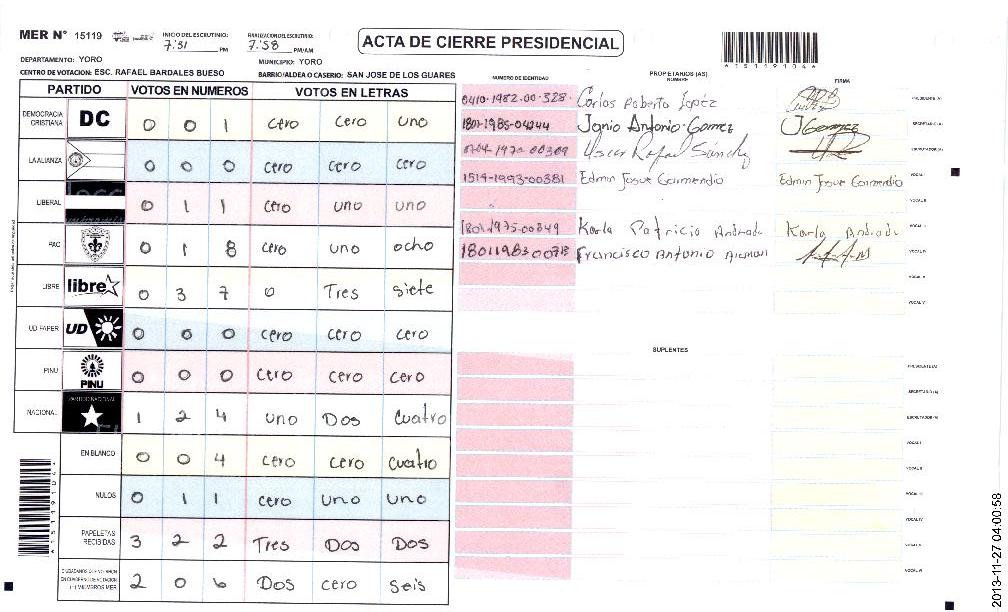 MER N° 15119
INICIO DEL ESCRUTINIO: 7:31 PM
FINALIZACION DEL ESCRUTINIO: 7:58 PM/AM
ACTA DE CIERRE PRESIDENCIAL
A 1 5 1 1 9 1 0 4 4
DEPARTAMENTO: YORO
MUNICIPIO: YORO
CENTRO DE VOTACION: ESC. RAFAEL BARDALES BUESO
BARRIO/ALDEA O CASERIO: SAN JOSE DE LOS GUARES
PARTIDO VOTOS EN NUMEROS VOTOS EN LETRAS
DEMOCRACIA CRISTIANA DC 0 0 1 cero cero uno
LA ALIANZA 0 0 0 cero cero cero
LIBERAL 0 1 1 cero uno uno
PAC 0 1 8 cero uno ocho
LIBRE libre 0 3 7 0 Tres siete
UD FAPER UD 0 0 0 cero cero cero
PINU PINU 0 0 0 cero cero cero
NACIONAL PARTIDO NACIONAL 1 2 4 uno Dos cuatro
EN BLANCO 0 0 4 cero cero cuatro
NULOS 0 1 1 cero uno uno
PAPELETAS RECIBIDAS 3 2 2 Tres Dos Dos
2 0 6 Dos cero seis
NUMERO DE IDENTIDAD PROPIETARIOS (AS) NOMBRE FIRMA
0410-1982-00-328- Carlos Roberto Lopéz PRESIDENTE (A)
1801-1985-04244 Jonio Antonio Gomez JGomez SECRETARIO (A)
Oscar Rafael Sánchez ESCRUTADOR (A)
1514-1993-00381 Edmin Josue Garmendio Edmin Josue Garmendio VOCAL I
VOCAL II
1801-1975-00849 Karla Patricia Andrade Karla Andrade VOCAL III
Francisco Antonio VOCAL IV
VOCAL V
SUPLENTES
PRESIDENTE (A)
SECRETARIO (A)
ESCRUTADOR (A)
VOCAL I
VOCAL II
VOCAL III
VOCAL IV
VOCAL V
2013-11-27 04:00:58